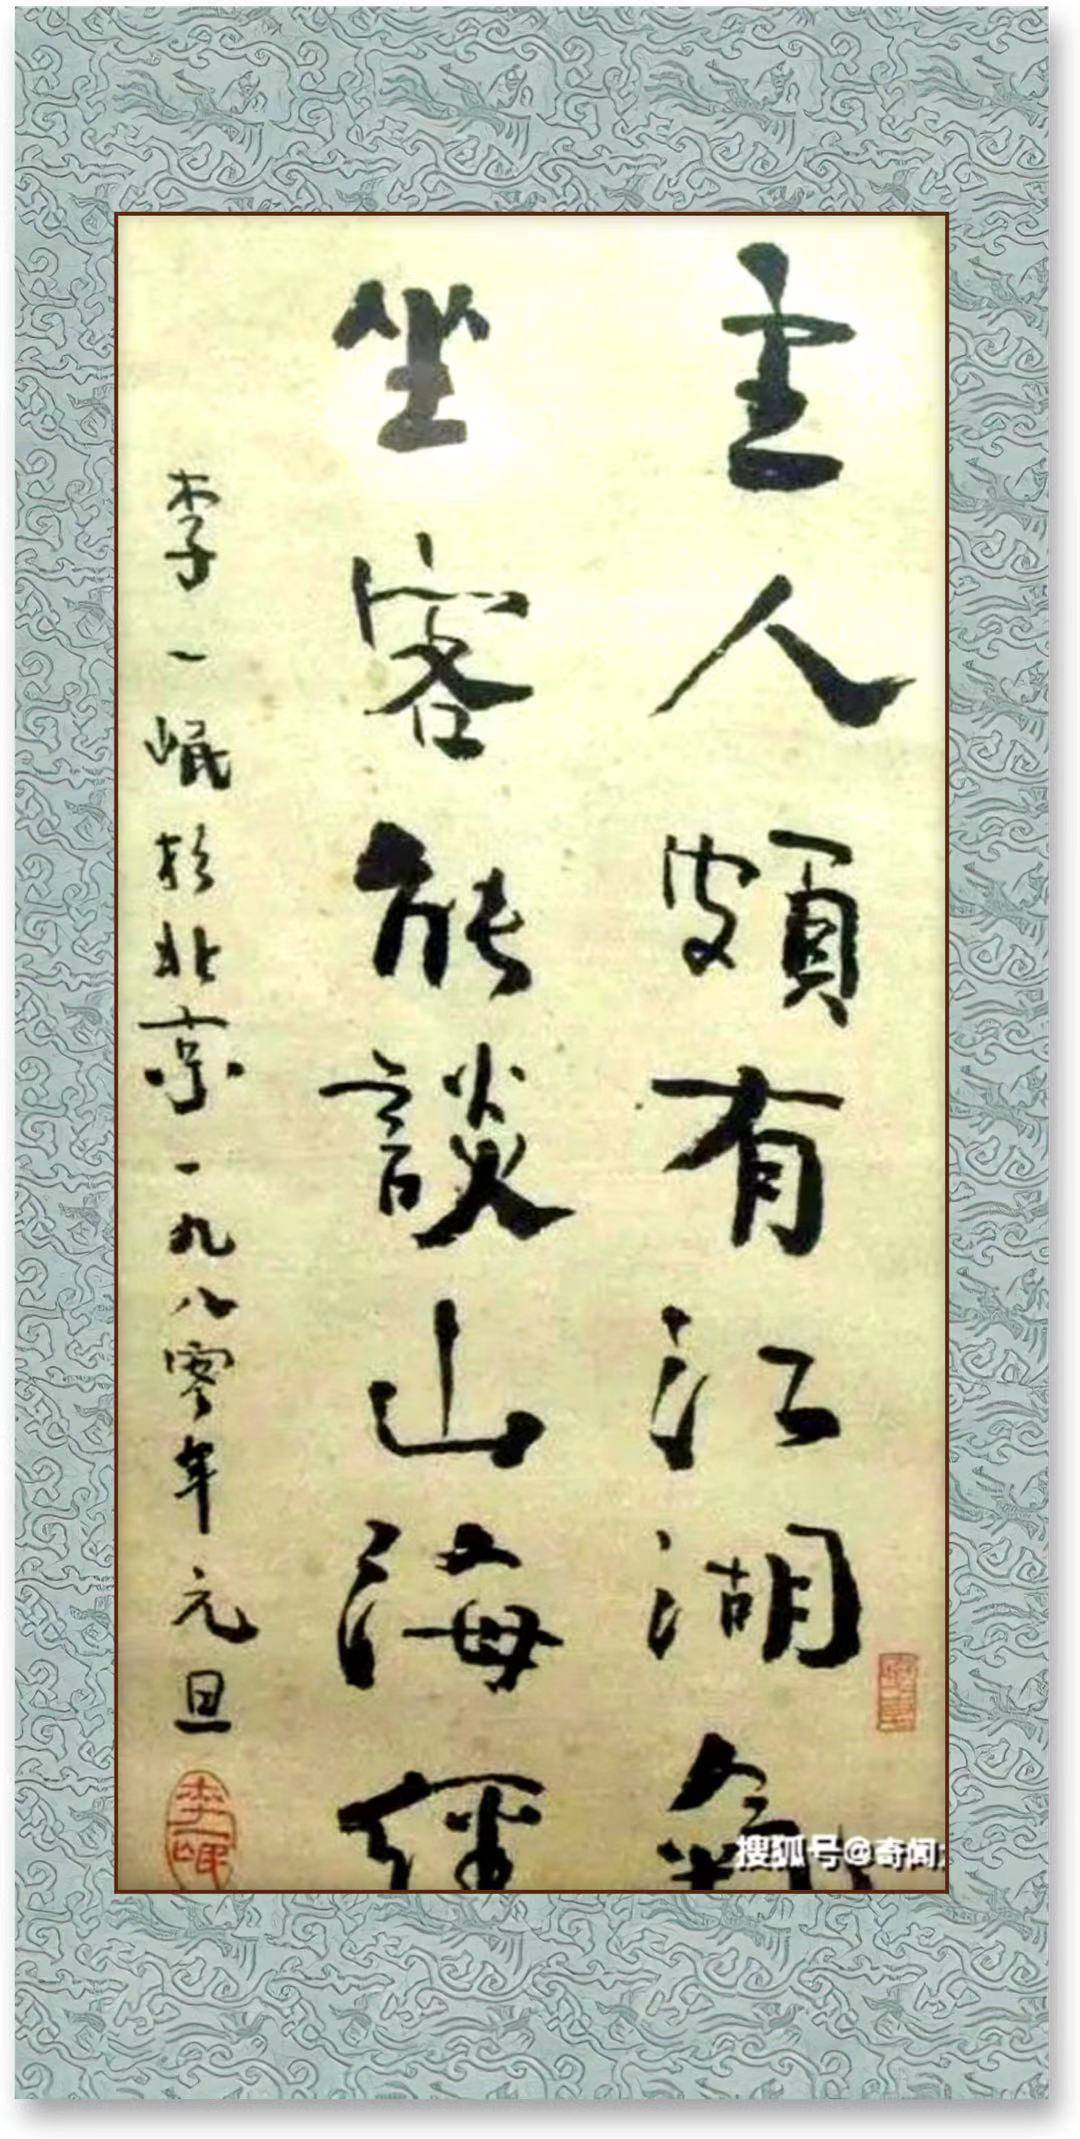 主人頗有江湖氣
坐客能談山海經
李一氓於北京一九八零年元旦
李一氓
搜狐号@奇闻